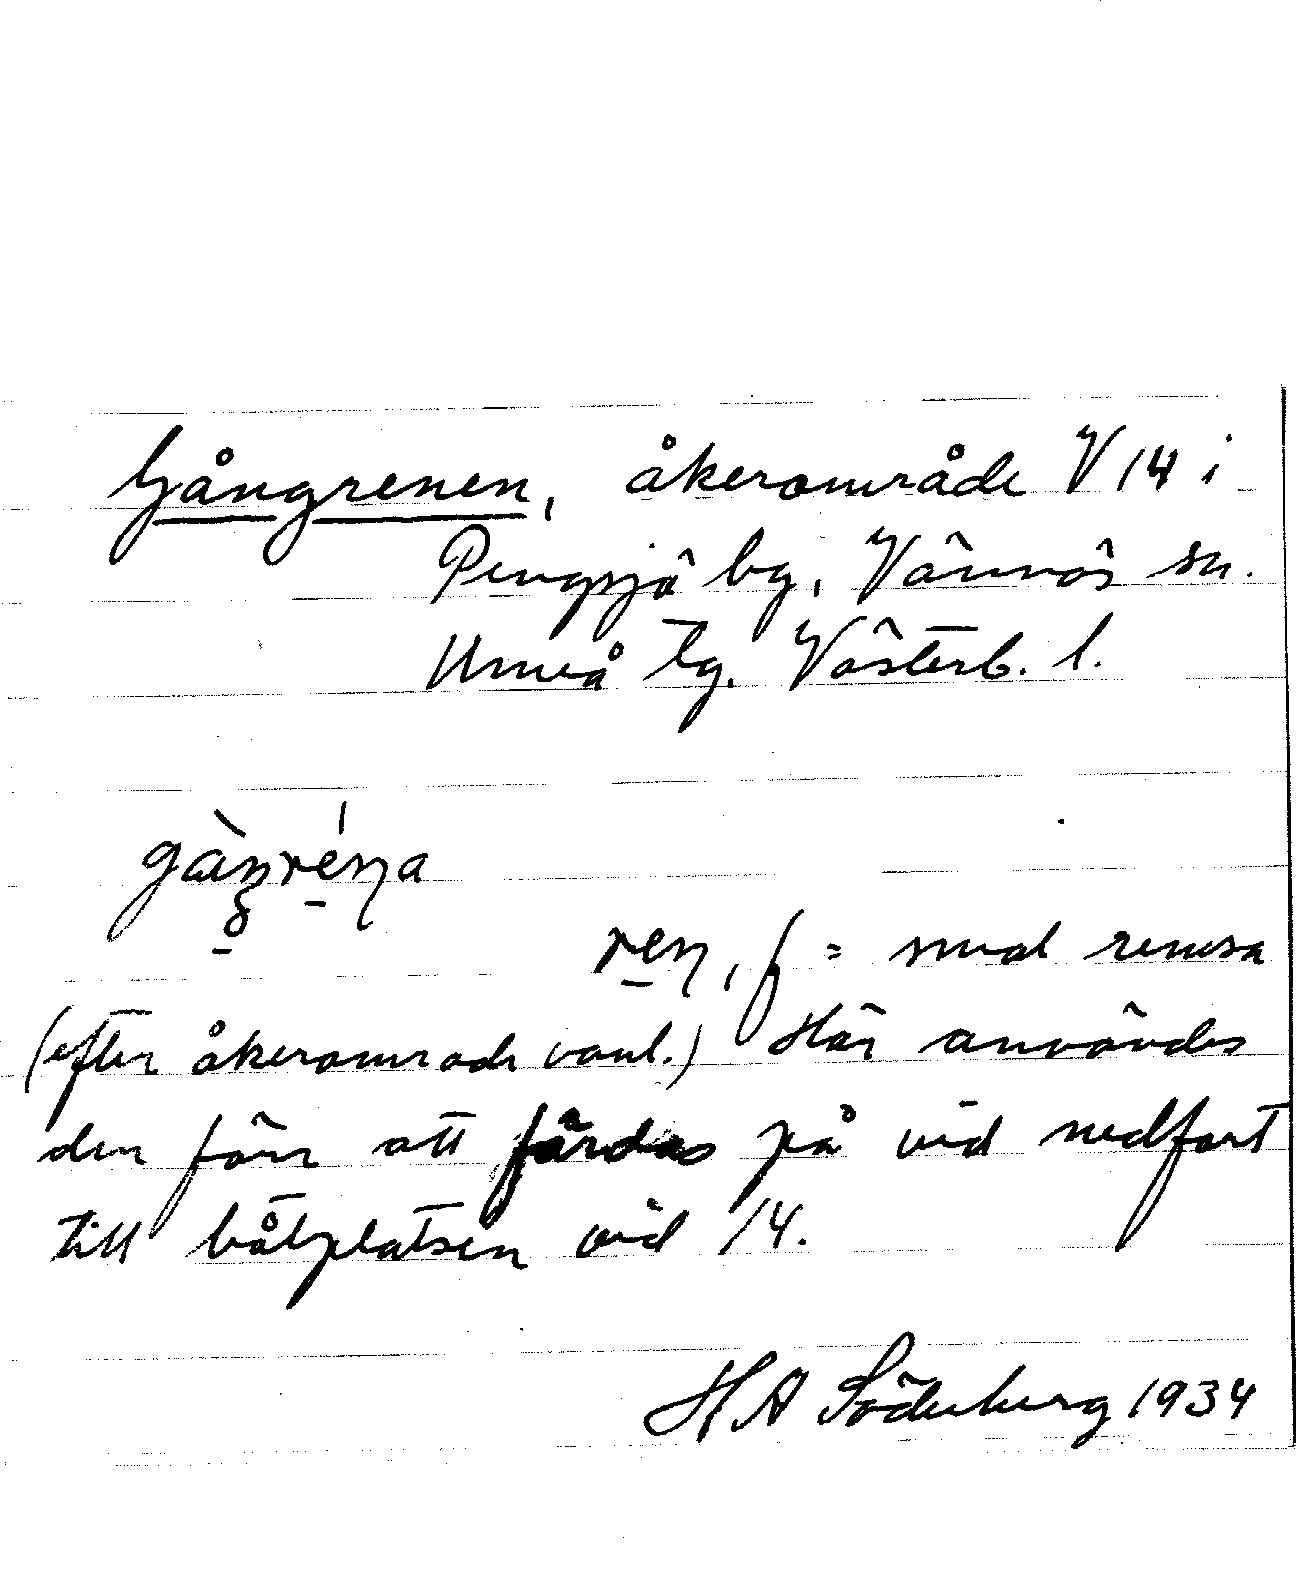 Gångrenen, åkerområde V 14 i
Pengsjö by, Vännäs sn.
Umeå tg. Västerb. l.
ren, f = smal remsa
(efter åkerområde vanl.) Här användes
den förr att färdas på vid nedfart
till båtplatsen vid 14.
H A Söderberg 1934